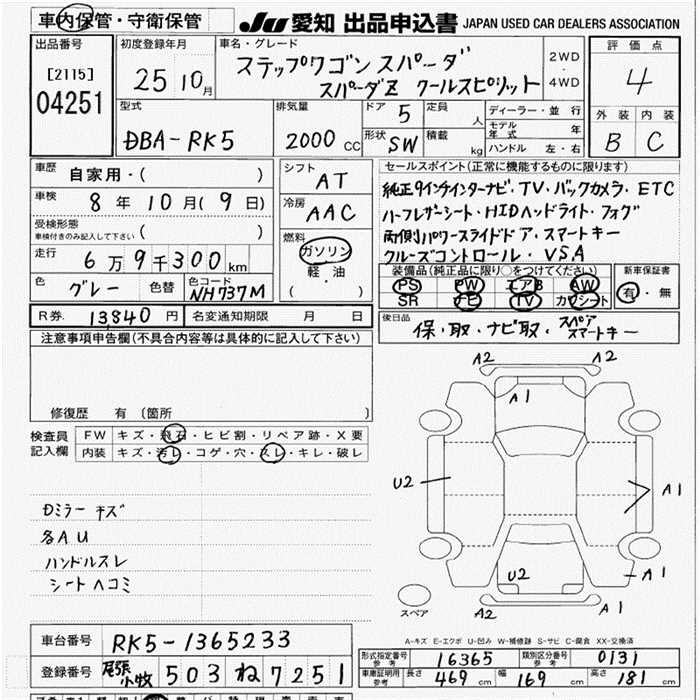 車内保管・守衛保管 JU 愛知 出品申込書 JAPAN USED CAR DEALERS ASSOCIATION
出品番号 [2115] 04251
初度登録年月 25 10月
車名・グレード ステップワゴン スパーダ
スパーダZ クールスピリット
2WD・4WD
評価点 4
外装 B 内装 C
型式 DBA-RK5
排気量 2000 CC
ドア 5
形状 SW
定員 人
積載 kg
ディーラー・並行
モデル年式 年
ハンドル 左・右
車歴 自家用・( )
車検 8年10月(9日)
受検形態 車検付きのみ記入して下さい ( )
走行 6万9千300km
色 グレー 色替 色コード NH737M
シフト AT
冷房 AAC
燃料 ガソリン
軽・油
( ・ )
セールスポイント(正常に機能するものに限ります)
純正9インチインターナビ・TV・バックカメラ・ETC
ハーフレザーシート・HIDヘッドライト・フォグ
両側パワースライドドア・スマートキー
クルーズコントロール・VSA
装備品(純正品に限り○をつけてください)
PS PW エアB AW
SR ナビ TV カワシート
新車保証書
有・無
R券 13840円 名変通知期限 月 日
後日品 保・取・ナビ取・スペアスマートキー
注意事項申告欄(不具合内容等は具体的に記入して下さい)
修復歴 有 (箇所 )
検査員記入欄
FW キズ・飛石・ヒビ割・リペア跡・X要
内装 キズ・汚レ・コゲ・穴・スレ・キレ・破レ
Dミラー キズ
各AU
ハンドルスレ
シートヘコミ
A2 A2
A1
U2 A1
U2 A1
A2 A1
スペア
A-キズ E-エクボ U-凹み W-補修跡 S-サビ C-腐食 XX-交換済
車台番号 RK5-1365233
登録番号 尾張小牧 503 ね 7251
形式指定番号 参考 16365 類別区分番号 参考 0131
車庫証明用 参考 長さ 469cm 幅 169cm 高さ 181cm